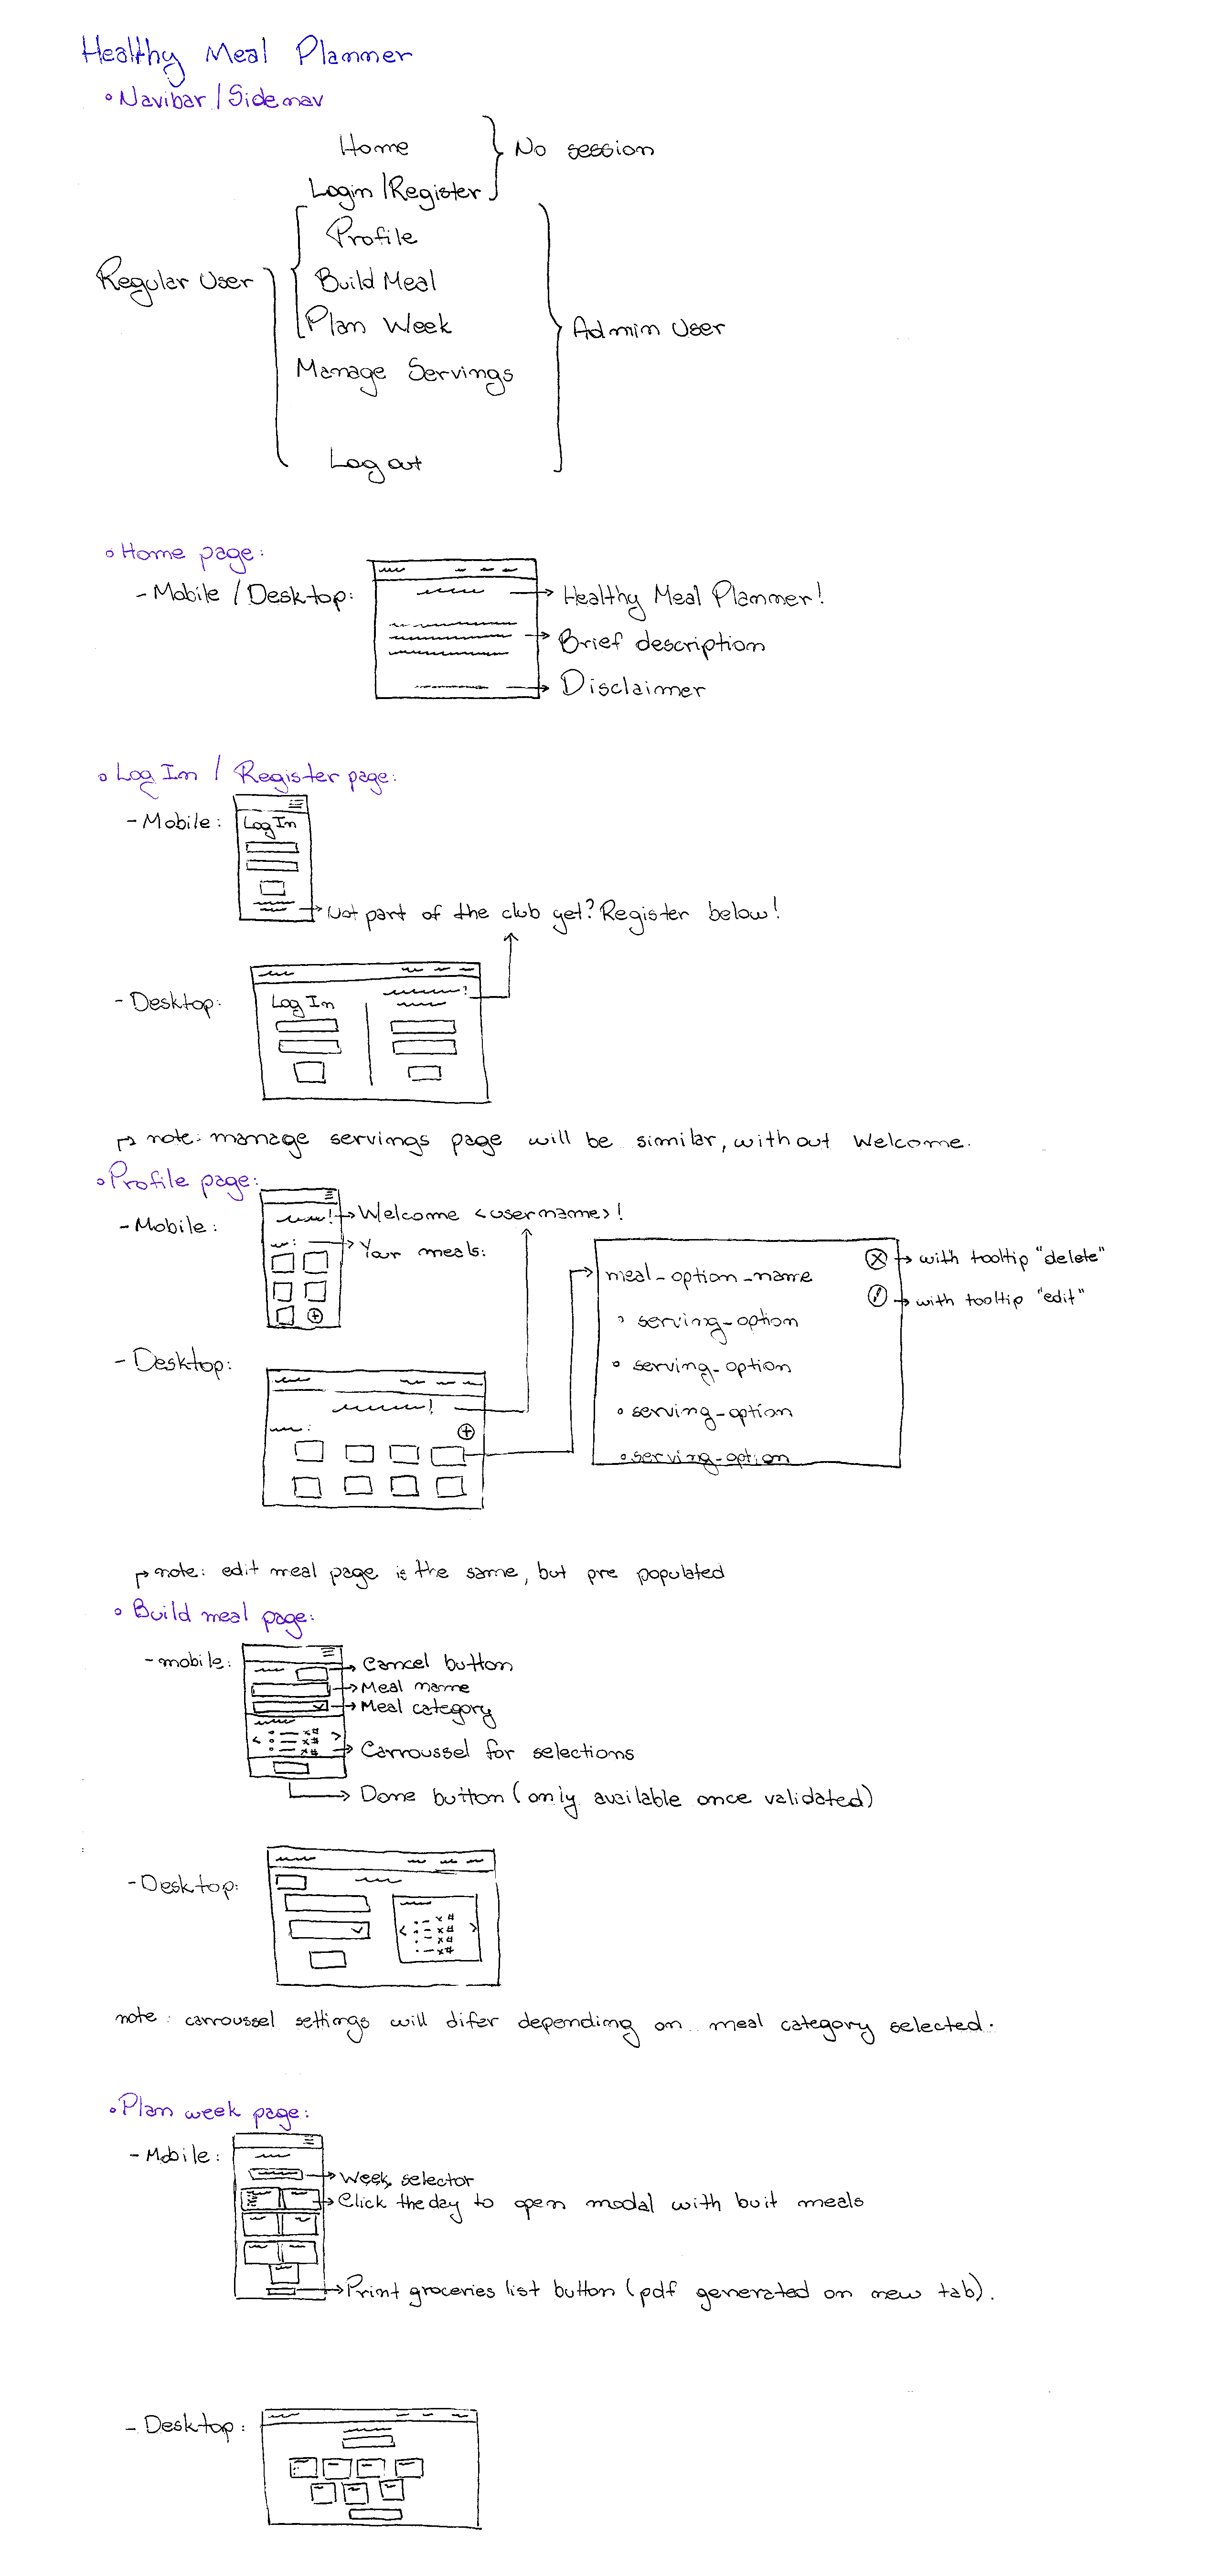 Healthy Meal Planner
Navibar/Sidenav
Home
No session
Login/Register
Profile
Regular User
Build Meal
Plan Week
Admin User
Manage Servings
Log out
Home page:
- Mobile / Desktop:
Healthy Meal Planner!
Brief description
Disclaimer
Log In / Register page:
- Mobile:
Log In
Not part of the club yet? Register below!
- Desktop:
Log In
note: manage servings page will be similar, without Welcome.
Profile page:
- Mobile:
Welcome <username>!
Your meals:
meal-option-name
with tooltip "delete"
with tooltip "edit"
serving-option
serving-option
serving-option
serving-option
- Desktop:
note: edit meal page is the same, but pre populated
Build meal page:
- mobile:
Cancel button
Meal name
Meal category
x#
x#
x#
Carroussel for selections
Done button (only available once validated)
- Desktop:
x#
x#
x#
x#
note: carroussel settings will difer depending on meal category selected.
Plan week page:
- Mobile:
Week selector
Click the day to open modal with buit meals
Print groceries list button (pdf generated on new tab).
- Desktop: